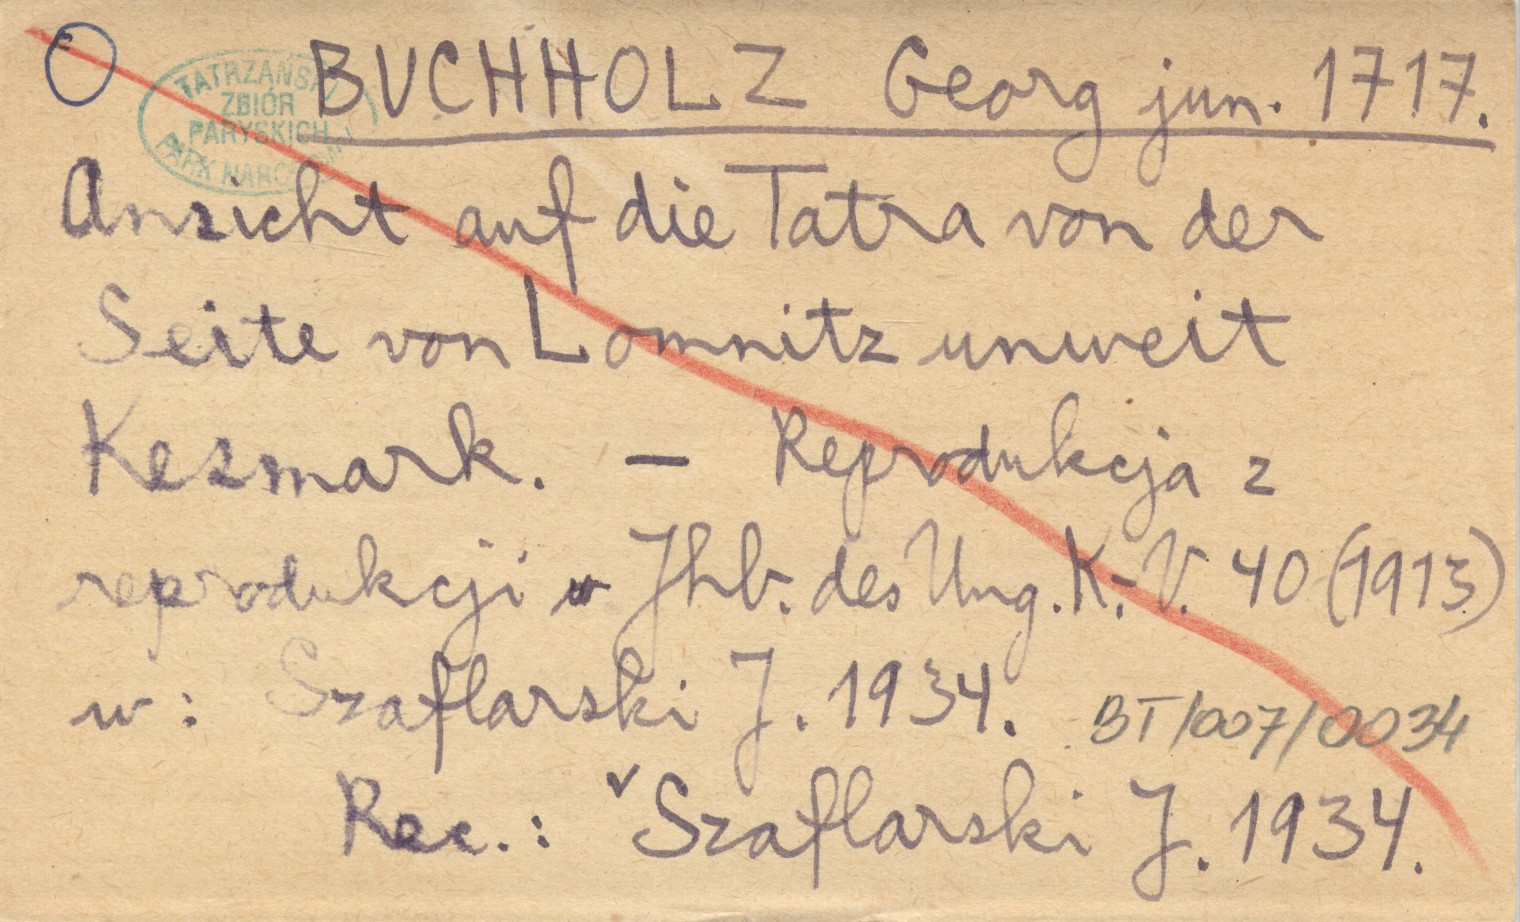 TATRZAŃSKI
ZBIÓR
PARYSKICH
PARK NARODOWY
BUCHHOLZ Georg jun. 1717.
Ansicht auf die Tatra von der
Seite von Lomnitz unweit
Kesmark. — Reprodukcja z
reprodukcji w Jhb. des Ung. K.-V. 40 (1913)
w: Szaflarski J. 1934.
BT/007/0034
Rec.: Szaflarski J. 1934.